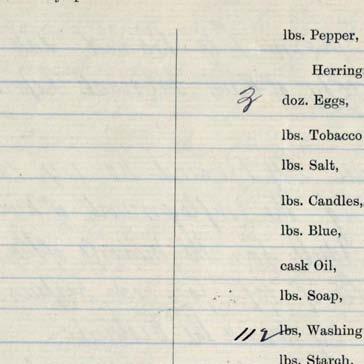 lbs. Pepper,
Herring
3 doz. Eggs,
lbs. Tobacco
lbs. Salt,
lbs. Candles,
lbs. Blue,
cask Oil,
lbs. Soap,
112 lbs, Washing
lbs. Starch.